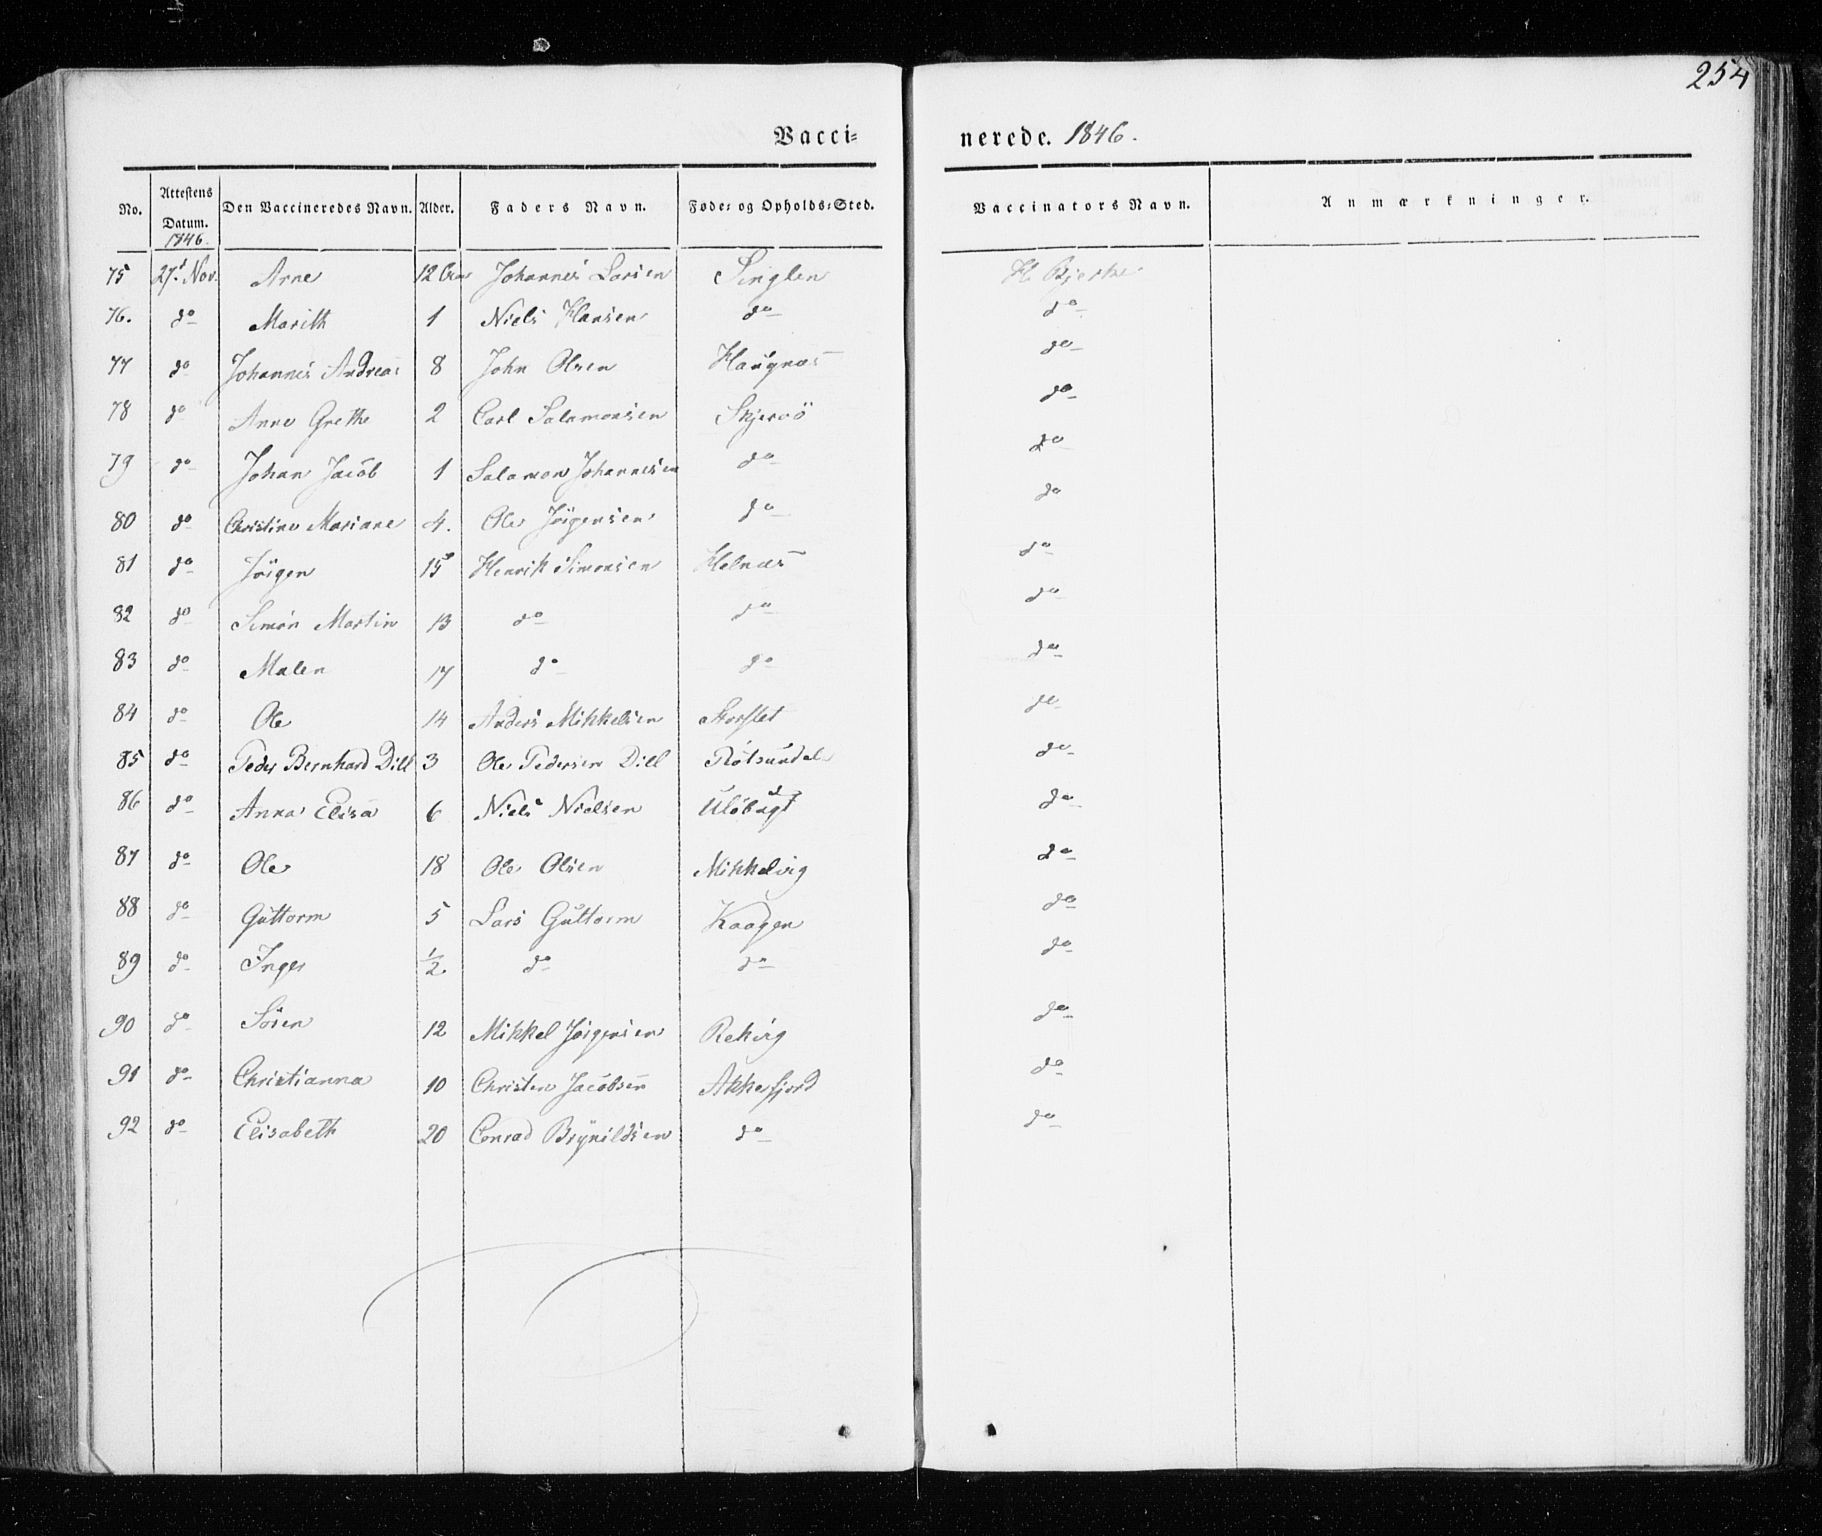 254
Vacci= nerede. 1846.
No. Attestens Datum. Den Vaccineredes Navn. Alder. Faders Navn. Føde= og Opholds=Sted. Vaccinators Navn. Anmærkninger.
1846.
75 27d Nov. Arne 12 Johannes Larsen Singlen H. Bjerke
76. do Marith 1 Niels Hansen do do
77 do Johannes Andreas 8 John Olsen Haugnæs do
78 do Anne Grethe 2 Carl Salamonsen Skjervö do
79 do Johan Jacob 1 Salamon Johannesen do do
80 do Christine Mariane 4. Ole Jörgensen do do
81 do Jörgen 15 Henrik Simonsen Helnæs do
82 do Simon Martin 13 do do do
83 do Malen 17 do do do
84 do Ole 14 Anders Mikkelsen Storslet do
85 do Peder Bernhard Dill 3 Ole Pedersen Dill Rötsundal do
86 do Anna Elisa 6 Niels Nielsen Ulöbugt do
87 do Ole 18 Ole Olsen Mikkelvig do
88 do Guttorm 5 Lars Guttorm Kaagen do
89 do Inger 1/2. do do do
90 do Sören 12 Mikkel Jörgensen Rekvig do
91 do Christianna 10 Christen Jacobsen Akkefjord do
92 do Elisabeth 20 Conrad Brynildsen do do